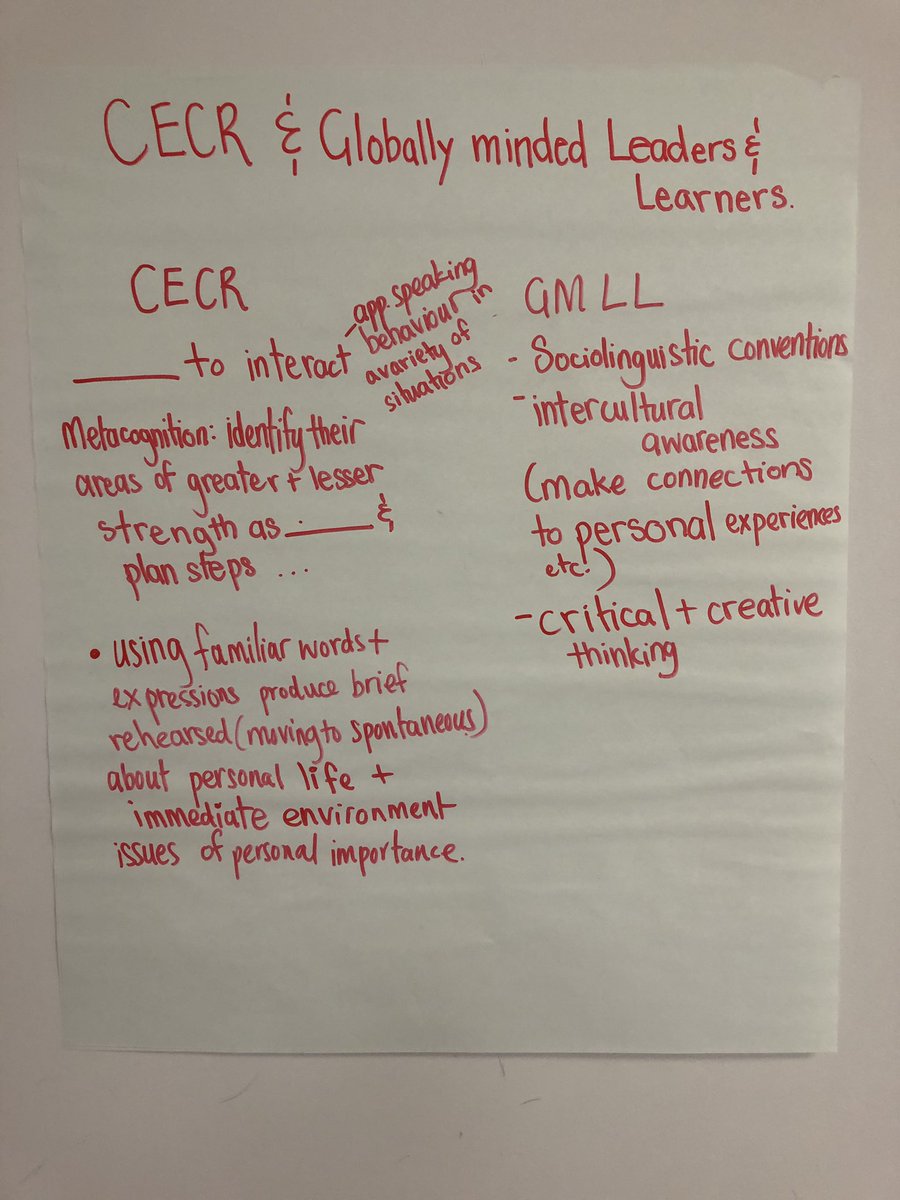 CECR & Globally minded Leaders &
Learners.
CECR
_____ to interact
- app. speaking
behaviour in
a variety of
situations
Metacognition: identify their
areas of greater + lesser
strength as _____ &
plan steps ...
• using familiar words +
expressions produce brief
rehearsed (moving to spontaneous)
about personal life +
immediate environment
issues of personal importance.
GMLL
- Sociolinguistic conventions
- intercultural
awareness
(make connections
to personal experiences
etc.)
- critical + creative
thinking